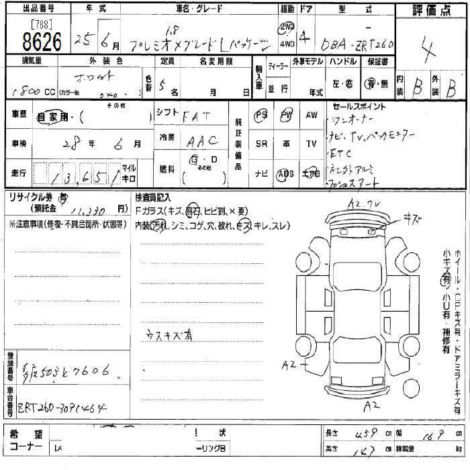 出品番号 年式 車名・グレード 駆動 ドア 型式 評価点
[788]
8626 25年 6月 1.8 プレミオ Xグレード Lパッケージ 2WD 4WD 4 DBA-ZRT260 4
排気量 外装色 色替 定員 名義変更期限 輸入車 ディーラー 外車モデル ハンドル 保証書
1800cc ホワイト (カラーNo 040) 5 月 日 並行 年 左・右 有・無 内装 B 外装 B
車歴 自家用・ その他 シフト FAT 純正装備品 PS PW AW セールスポイント
ワンオーナー
ナビ、TV、バックモニター
車検 28年 6月 冷房 AAC SR 革 TV ETC
走行 13,651 マイル キロ 燃料 G・D その他 ナビ ABS エアB
リサイクル券 有 (預託金 11,330円)
検査員記入
Fガラス(キズ、飛石、ヒビ割、×要)
※注意事項(修復・不具合箇所・状態等)
内装(汚れ、シミ、コゲ、穴、破れ、キズ、キレ、スレ)
A2、ワレ
キズ
ウスキズ有
ホイール・CPキズ有・ドアミラーキズ有
小キズ有・小U有・補修有
登録番号 503 7606
A2
車台番号 ZRT260-3091464
A2
希望コーナー 1 状 ーリング日 長さ 459 幅 169
高さ 147 積載量 kg